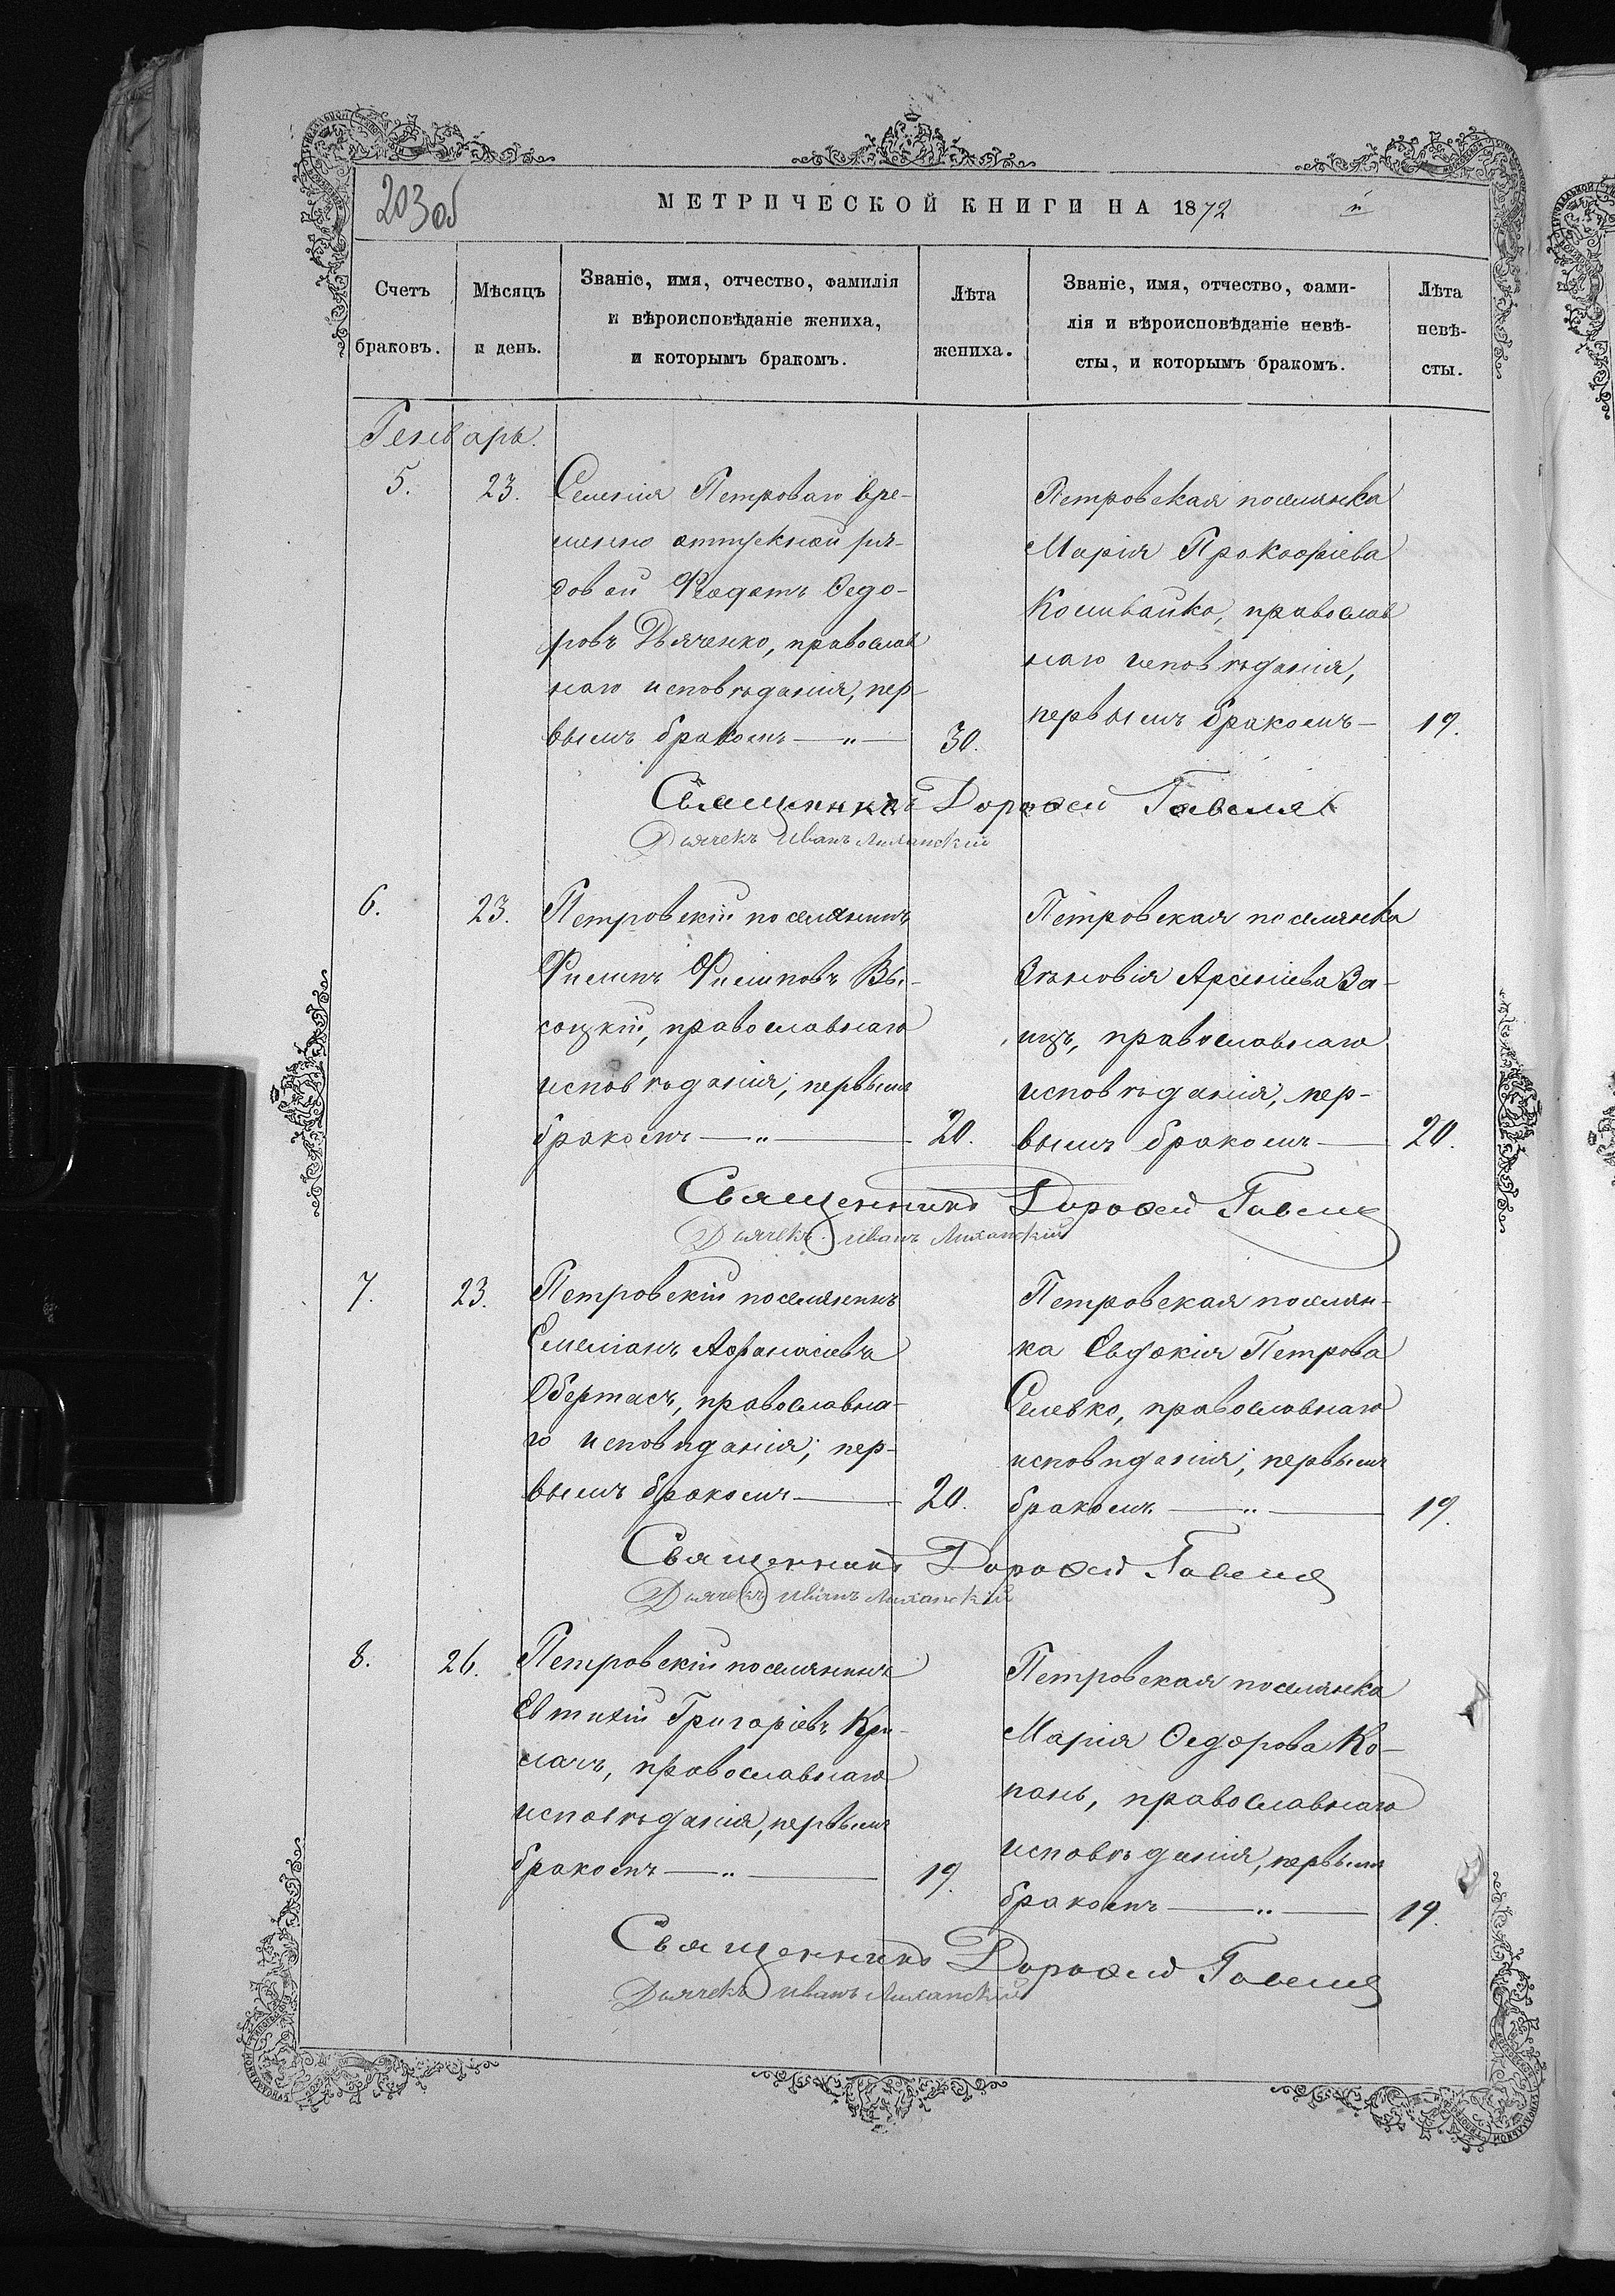 203об
МЕТРИЧЕСКОЙ КНИГИ НА 1872 й
Счетъ браковъ.
Мѣсяцъ и день.
Званіе, имя, отчество, фамилія
и вѣроисповѣданіе жениха,
и которымъ бракомъ.
Лѣта жениха.
Званіе, имя, отчество, фами-
лія и вѣроисповѣданіе невѣ-
сты, и которымъ бракомъ.
Лѣта невѣ-
сты.
Генварь.
5.
23.
Селенія Петроваго вре-
менно отпускной ря-
довой Феодотъ Ѳедо-
ровъ Дьяченко, православ
наго исповѣданія, пер-
вымъ бракомъ — „ —
30.
Петровская поселянка
Марія Прокофіева
православ
наго исповѣданія,
первымъ бракомъ —
19.
Священникъ Дороѳей Гавеля
Дьячекъ Иванъ Лиханскій
6.
23.
Петровскій поселянинъ
Филипъ Филиповъ Вы-
соцкій, православнаго
исповѣданія, первымъ
бракомъ — „ —
20.
Петровская поселянка
Зѣновія Арсеніева За-
яцъ, православнаго
исповѣданія, пер-
вымъ бракомъ —
20.
Священникъ Дороѳей Гавеля
Дьячекъ Иванъ Лиханскій
7.
23.
Петровскій поселянинъ
Емеліанъ Афанасіевъ
Обертасъ, православна-
го исповѣданія; пер-
вымъ бракомъ —
20.
Петровская поселян-
ка Евдокія Петрова
Селевко, православнаго
исповѣданія; первымъ
бракомъ — „ —
19.
Священникъ Дороѳей Гавеля
Дьячекъ Иванъ Лиханскій
8.
26.
Петровскій поселянинъ
Евтихій Григоріевъ
православнаго
исповѣданія, первымъ
бракомъ — „ —
19.
Петровская поселянка
Марія Ѳедорова Ко-
пань, православнаго
исповѣданія, первымъ
бракомъ — „ —
19.
Священникъ Дороѳей Гавеля
Дьячекъ Иванъ Лиханскій